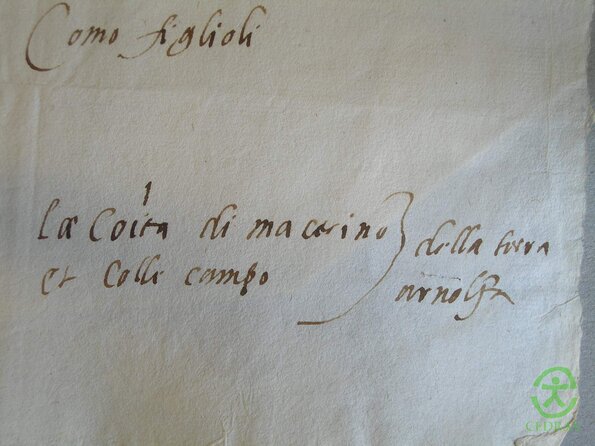 Como figlioli
La Coíta di macerino
et Colle campo
della terra
arnolfa
CEDRAV